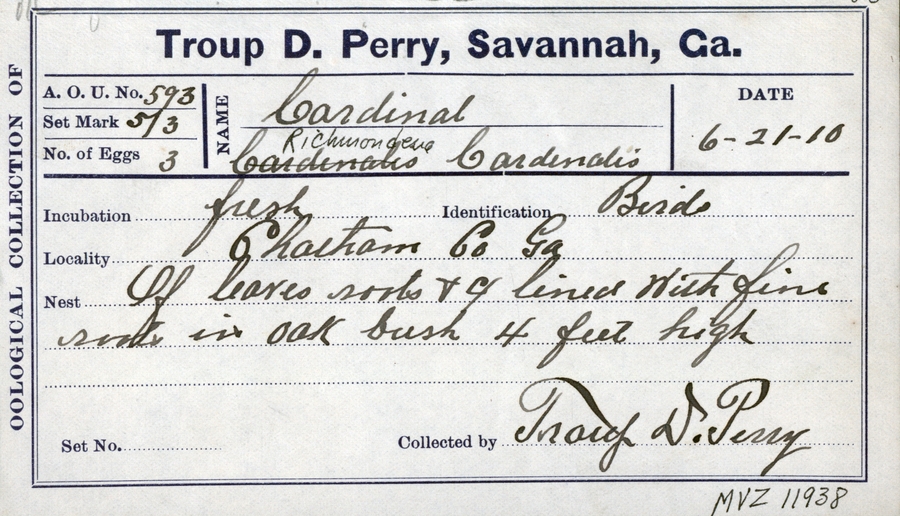 OOLOGICAL COLLECTION OF
Troup D. Perry, Savannah, Ga.
A. O. U. No. 593
Set Mark 5/3
No. of Eggs 3
NAME
Cardinal
Richmondena
Cardinalis Cardinalis
DATE
6-21-10
Incubation fresh Identification Birds
Locality Chatham Co Ga
Nest Of leaves roots & g lined with fine
roots in oak bush 4 feet high
Set No. Collected by Troup D. Perry
MVZ 11938